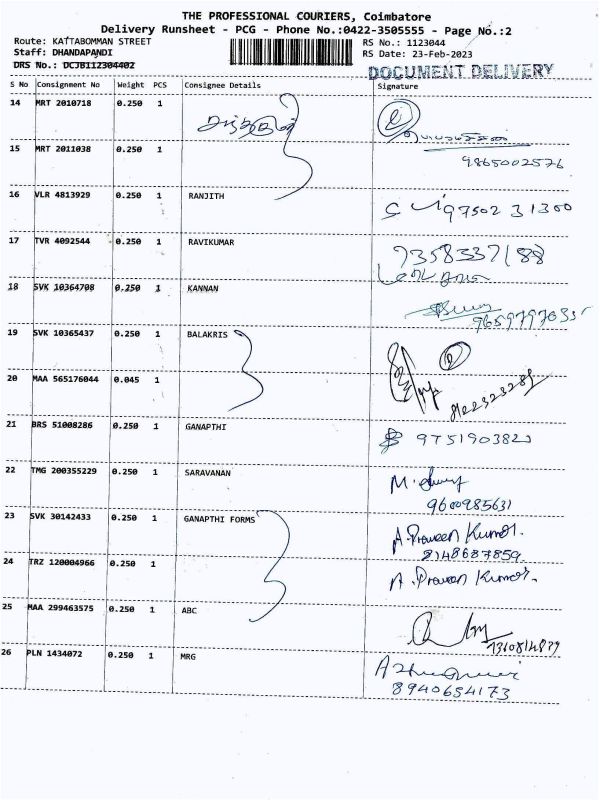 THE PROFESSIONAL COURIERS, Coimbatore
Delivery Runsheet - PCG - Phone No.:0422-3505555 - Page No.:2
Route: KATTABOMMAN STREET
RS No.: 1123044
Staff: DHANDAPANDI
RS Date: 23-Feb-2023
DRS No.: DCJB112304402
DOCUMENT DELIVERY
S No Consignment No Weight PCS Consignee Details Signature
14 MRT 2010718 0.250 1
15 MRT 2011038 0.250 1
9865002576
16 VLR 4813929 0.250 1 RANJITH
97502 31300
17 TVR 4092544 0.250 1 RAVIKUMAR
7358337188
18 SVK 10364708 0.250 1 KANNAN
19 SVK 10365437 0.250 1 BALAKRIS
20 MAA 565176044 0.045 1
21 BRS 51008286 0.250 1 GANAPTHI
22 TMG 200355229 0.250 1 SARAVANAN
9600985631
23 SVK 30142433 0.250 1 GANAPTHI FORMS
A. Praveen Kumar.
8148687859
24 TRZ 120004966 0.250 1
A. Praveen Kumar.
25 MAA 299463575 0.250 1 ABC
26 PLN 1434072 0.250 1 MRG
8940654173